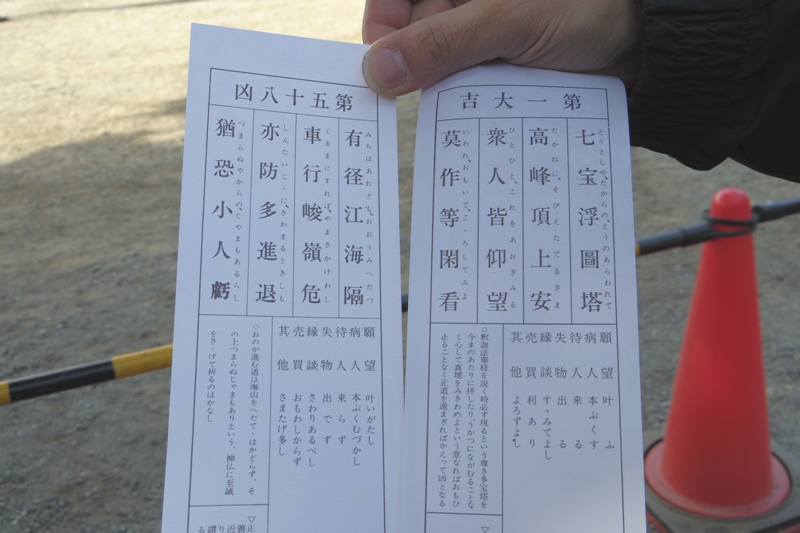 第一大吉
七宝浮圖塔
とうとしや、たからの、とうのあらわれて
高峰頂上安
たかねに、そびえたてるさま
衆人皆仰望
ひとびと、これをあおぎみる
莫作等閑看
いわれ、おもいて、こゝろしてみよ
願望 叶ふ
病人 本ぶくす
待人 来る
失物 出る
縁談 すゝみてよし
売買 利あり
其他 よろずよし
○釈迦法華経を説く時必ず現るという尊き多宝塔を
今まのあたりに拝したり、うかつにながむることな
く心して真理をみきわめよという意なればおもひ
止ることなく正道を進まざればかえって凶となる
▽
第五十八凶
有径江海隔
みちはあれども、おおうんへだつ
車行峻嶺危
くるまにすれば、やまさかけわし
亦防多進退
しんたいこゝに、きわまるときしも
猶恐小人虧
つまらぬやからの、じゃまもあるらし
願望 叶いがたし
病人 本ぶくむづかし
待人 来らず
失物 出でず
縁談 さわりあるべし
売買 おもわしからず
其他 さまたげ多し
○おのが進む道は海山をへだて、はかどらず、そ
の上つまらぬじゃまもありという、神仏に至誠
をさゝげて祈るのほかなし
▽